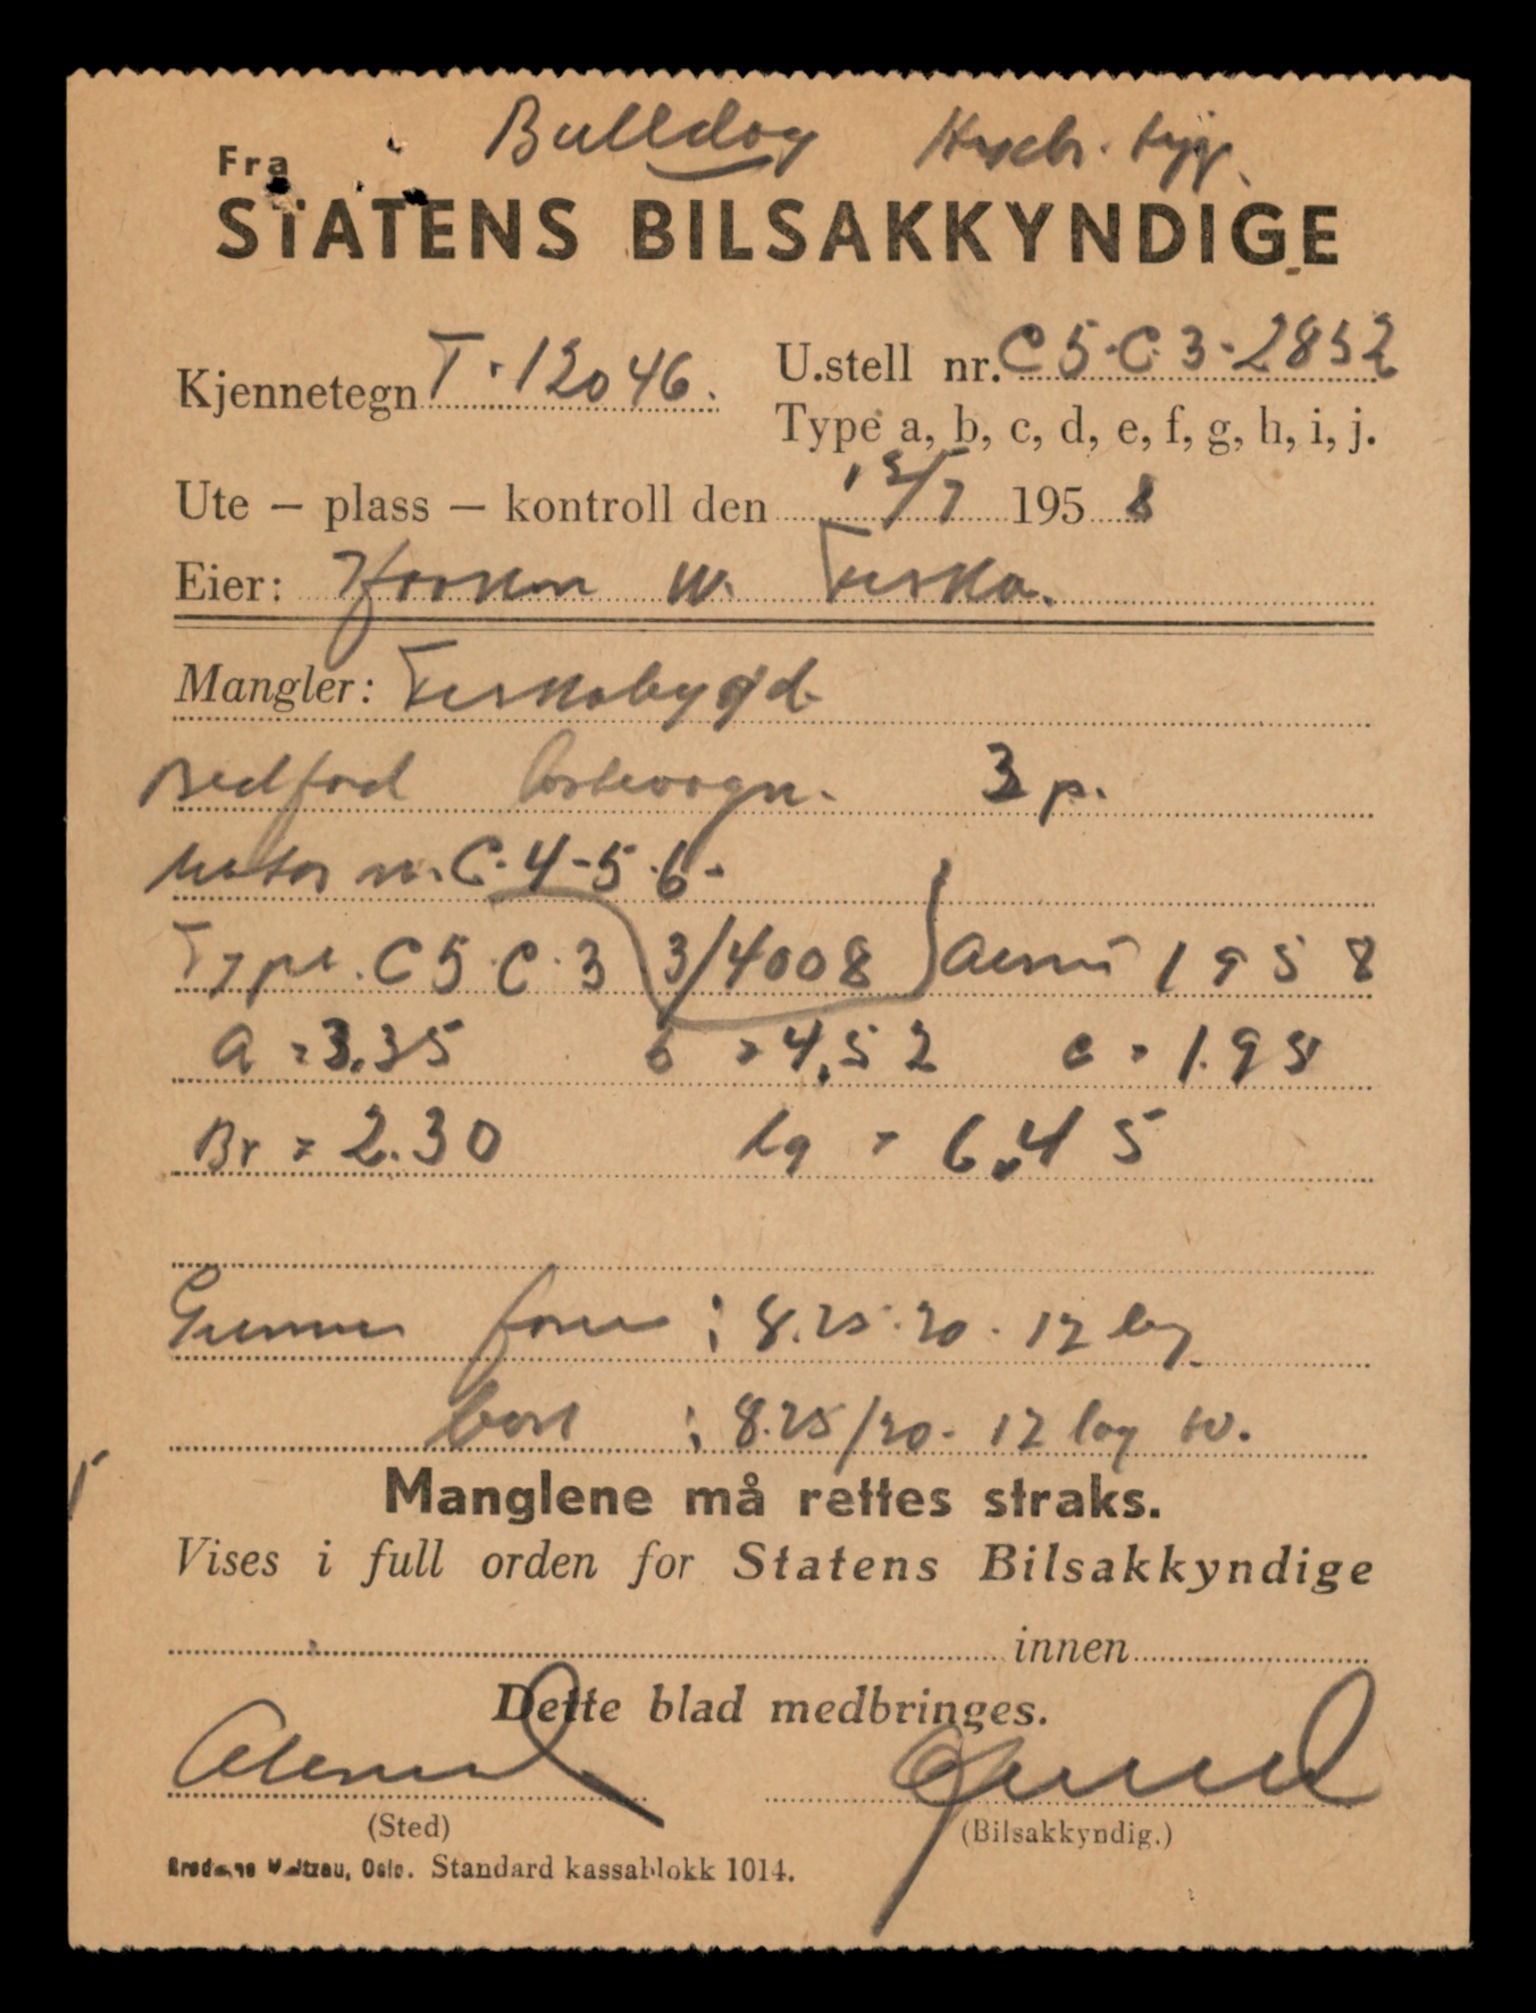 Bulldog
Fra
STATENS BILSAKKYNDIGE
Kjennetegn T-12046.
U.stell nr. C5.C3-2852
Type a, b, c, d, e, f, g, h, i, j.
Ute – plass – kontroll den 12/7 1958
Eier: Haakon W. Tverrka.
Mangler:
Bedford lastevogn. 3 p.
Motor nr. C.4-5.6-
Type. C5.C.3 3/4008 1958
a = 3.35 b = 4,52 c = 1.95
Br = 2.30 Lg = 6,45
Gummi foran : 8.25.20. 12 lag
bak : 8.25/20. 12 lag tv.
Manglene må rettes straks.
Vises i full orden for Statens Bilsakkyndige
innen
Dette blad medbringes.
(Sted) (Bilsakkyndig.)
Oslo. Standard kassablokk 1014.